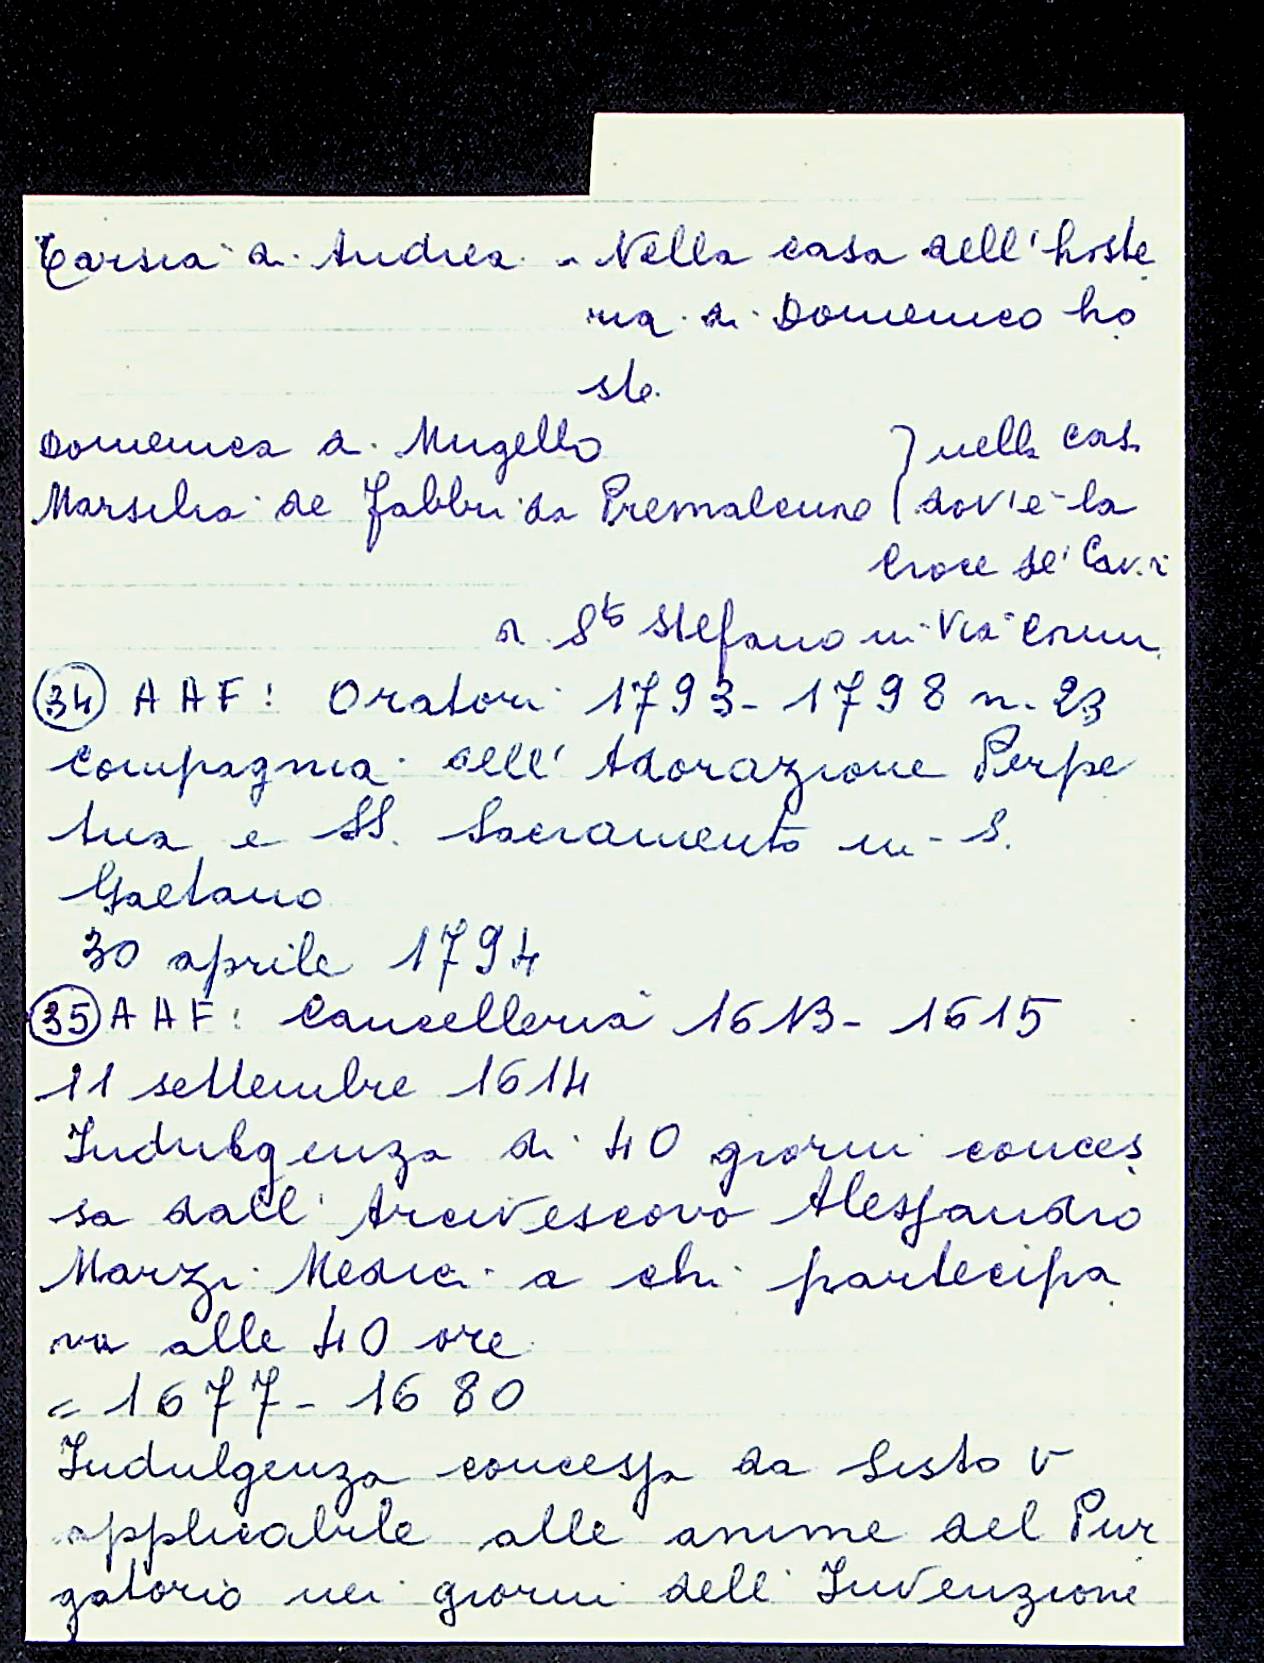 Tarsia d. Andrea - Nella casa dell'hoste
ria di Domenico ho
ste.
Domenica d. Mugello } nella casa
Marsilia de Fabbri da Premalcuno ( dov'è la
Croce de' Cav.i
a S.to Stefano in Via
34 AAF: Oratori 1793-1798 n. 23
Compagnia dell'Adorazione Perpe
tua e SS. Sacramento in S.
Gaetano
30 aprile 1794
35 AAF: Cancelleria 1613-1615
11 settembre 1614
Indulgenza di 40 giorni conces
sa dall'Arcivescovo Alessandro
Marzi Medici a chi partecipa
va alle 40 ore
= 1677-1680
Indulgenza concessa da Sisto V
applicabile alle anime del Pur
gatorio nei giorni dell'Invenzione